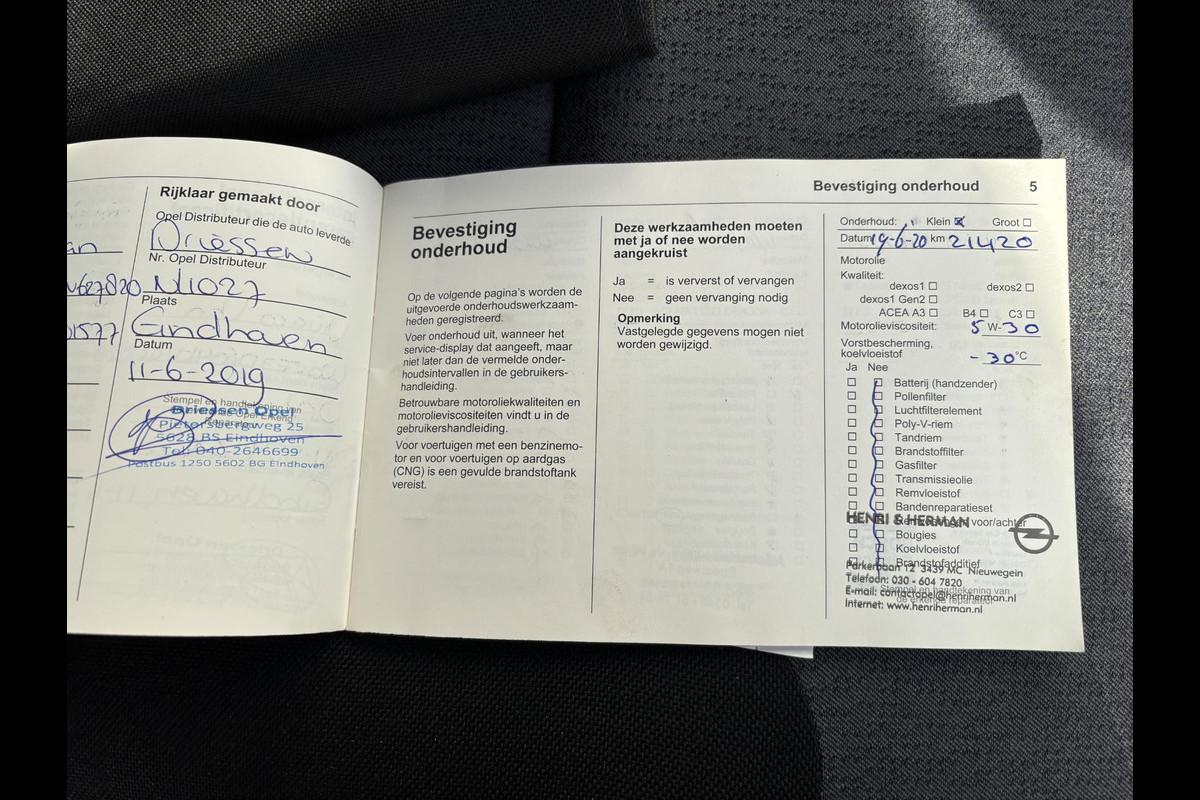 an
627820
01577
Rijklaar gemaakt door
Opel Distributeur die de auto leverde
Driessen
Nr. Opel Distributeur
NL1027
Plaats
Eindhoven
Datum
11-6-2019
Stempel en handtekening van
Driessen Opel
Pietersbergweg 25
5628 BS Eindhoven
Tel. 040-2646699
Postbus 1250 5602 BG Eindhoven
Bevestiging
onderhoud
Op de volgende pagina's worden de
uitgevoerde onderhoudswerkzaam-
heden geregistreerd.
Voer onderhoud uit, wanneer het
service-display dat aangeeft, maar
niet later dan de vermelde onder-
houdsintervallen in de gebruikers-
handleiding.
Betrouwbare motoroliekwaliteiten en
motorolieviscositeiten vindt u in de
gebruikershandleiding.
Voor voertuigen met een benzinemo-
tor en voor voertuigen op aardgas
(CNG) is een gevulde brandstoftank
vereist.
Deze werkzaamheden moeten
met ja of nee worden
aangekruist
Ja = is ververst of vervangen
Nee = geen vervanging nodig
Opmerking
Vastgelegde gegevens mogen niet
worden gewijzigd.
Bevestiging onderhoud 5
Onderhoud: Klein ☒ Groot ☐
Datum 19-6-20 km 21420
Motorolie
Kwaliteit:
dexos1 ☐ dexos2 ☐
dexos1 Gen2 ☐
ACEA A3 ☐ B4 ☐ C3 ☐
Motorolieviscositeit: 5 W-30
Vorstbescherming,
koelvloeistof -30 °C
Ja Nee
☐ ☐ Batterij (handzender)
☐ ☐ Pollenfilter
☐ ☐ Luchtfilterelement
☐ ☐ Poly-V-riem
☐ ☐ Tandriem
☐ ☐ Brandstoffilter
☐ ☐ Gasfilter
☐ ☐ Transmissieolie
☐ ☐ Remvloeistof
☐ ☐ Bandenreparatieset
☐ ☐ voor/achter
HENRI & HERMAN
☐ ☐ Bougies
☐ ☐ Koelvloeistof
☐ ☐ Brandstofadditief
Parkerbaan 12 3439 MC Nieuwegein
Telefoon: 030 - 604 7820
Stempel en handtekening van
de erkende reparateur
E-mail: contactopel@henriherman.nl
Internet: www.henriherman.nl